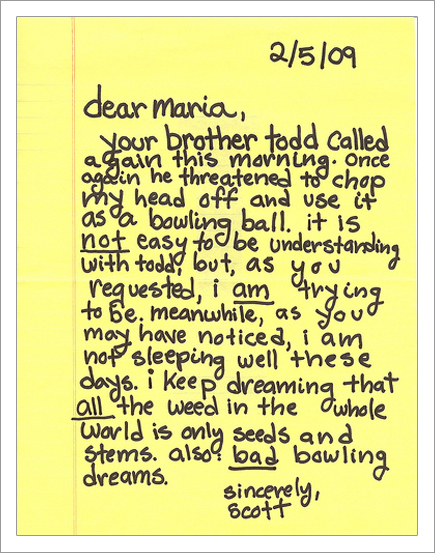 2/5/09
dear maria,
your brother todd called
again this morning. once
again he threatened to chop
my head off and use it
as a bowling ball. it is
not easy to be understanding
with todd, but, as you
requested, i am trying
to be. meanwhile, as you
may have noticed, i am
not sleeping well these
days. i keep dreaming that
all the weed in the whole
world is only seeds and
stems. also: bad bowling
dreams.
sincerely,
scott